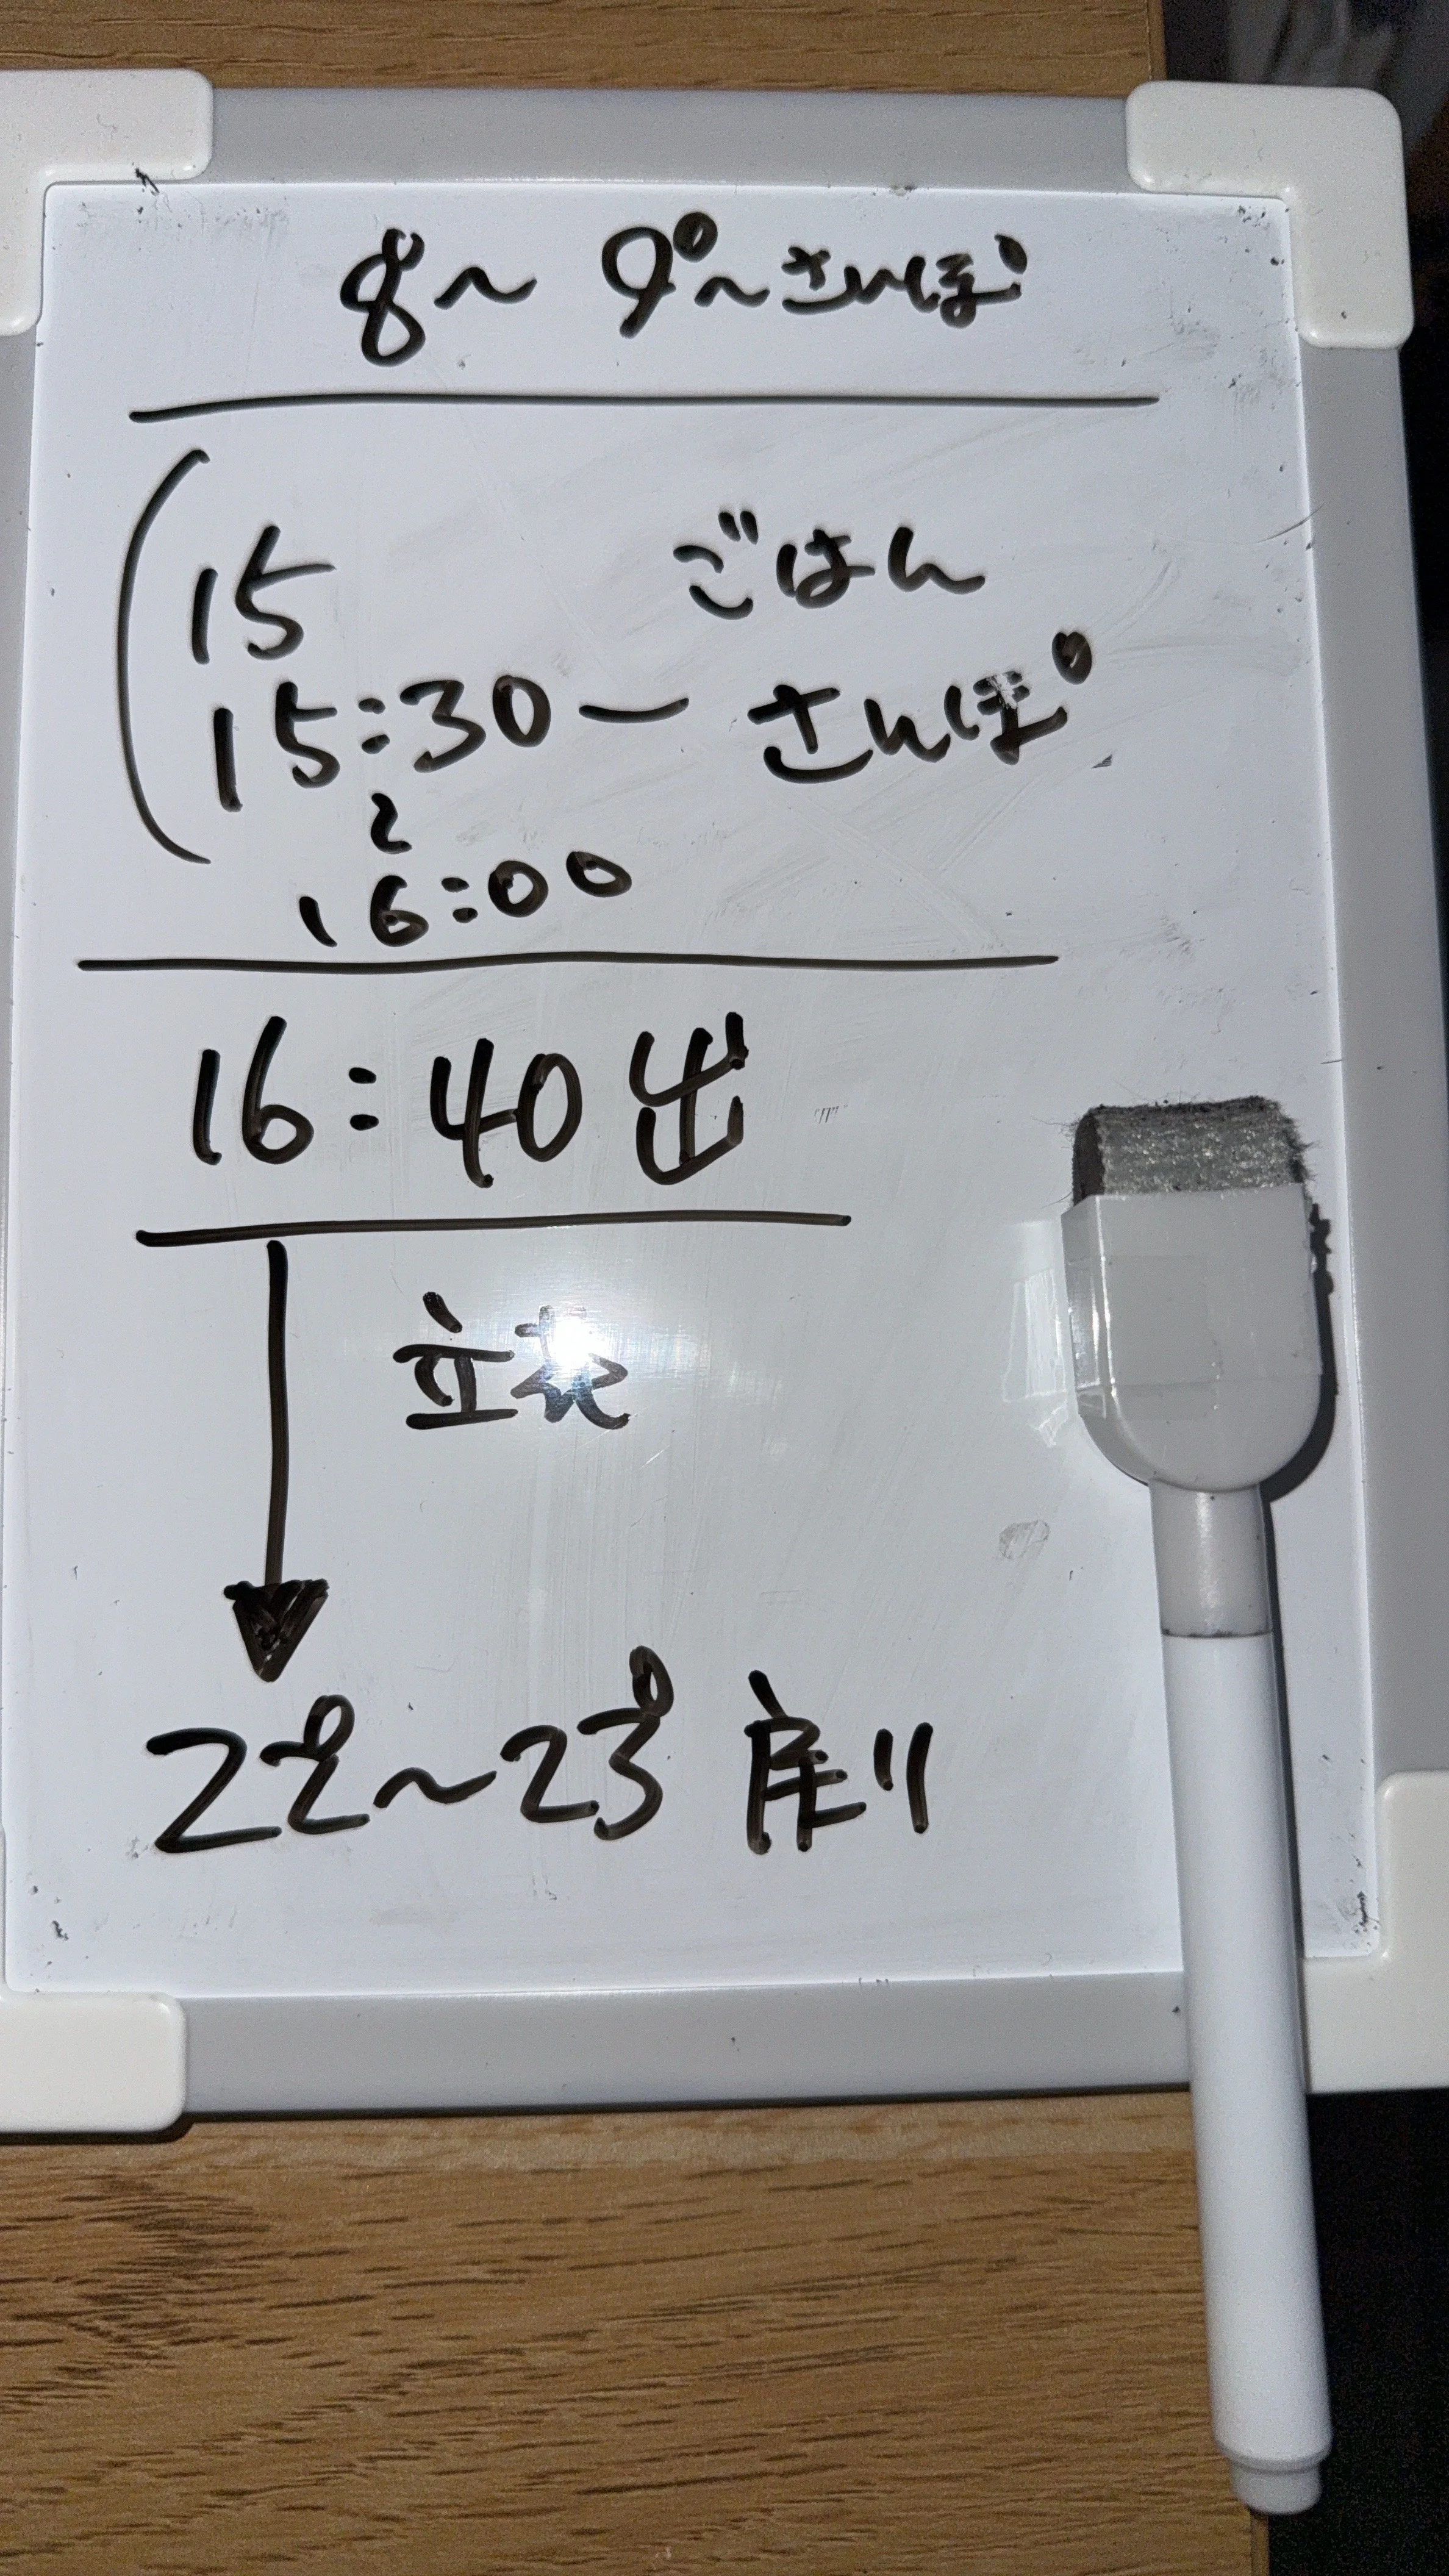 8~ 9⁰~さんぽ
15 ごはん
15:30 ー さんぽ
~
16:00
16:40 出
立花
22⁰~23⁰ 戻り